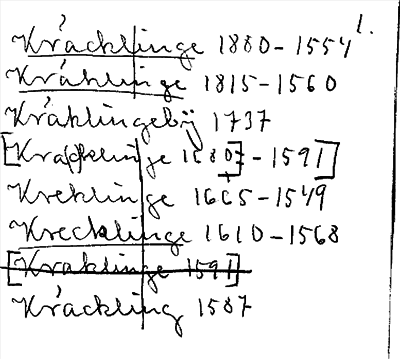 1.
Kråcklinge 1880-1554
Kråklinge 1815-1560
Kråklingebÿ 1737
[Kracklinge 1680] - 1591]
Kreklinge 1665-1549
Krecklinge 1610-1568
[Kraklinge 1591]
Kråckling 1587